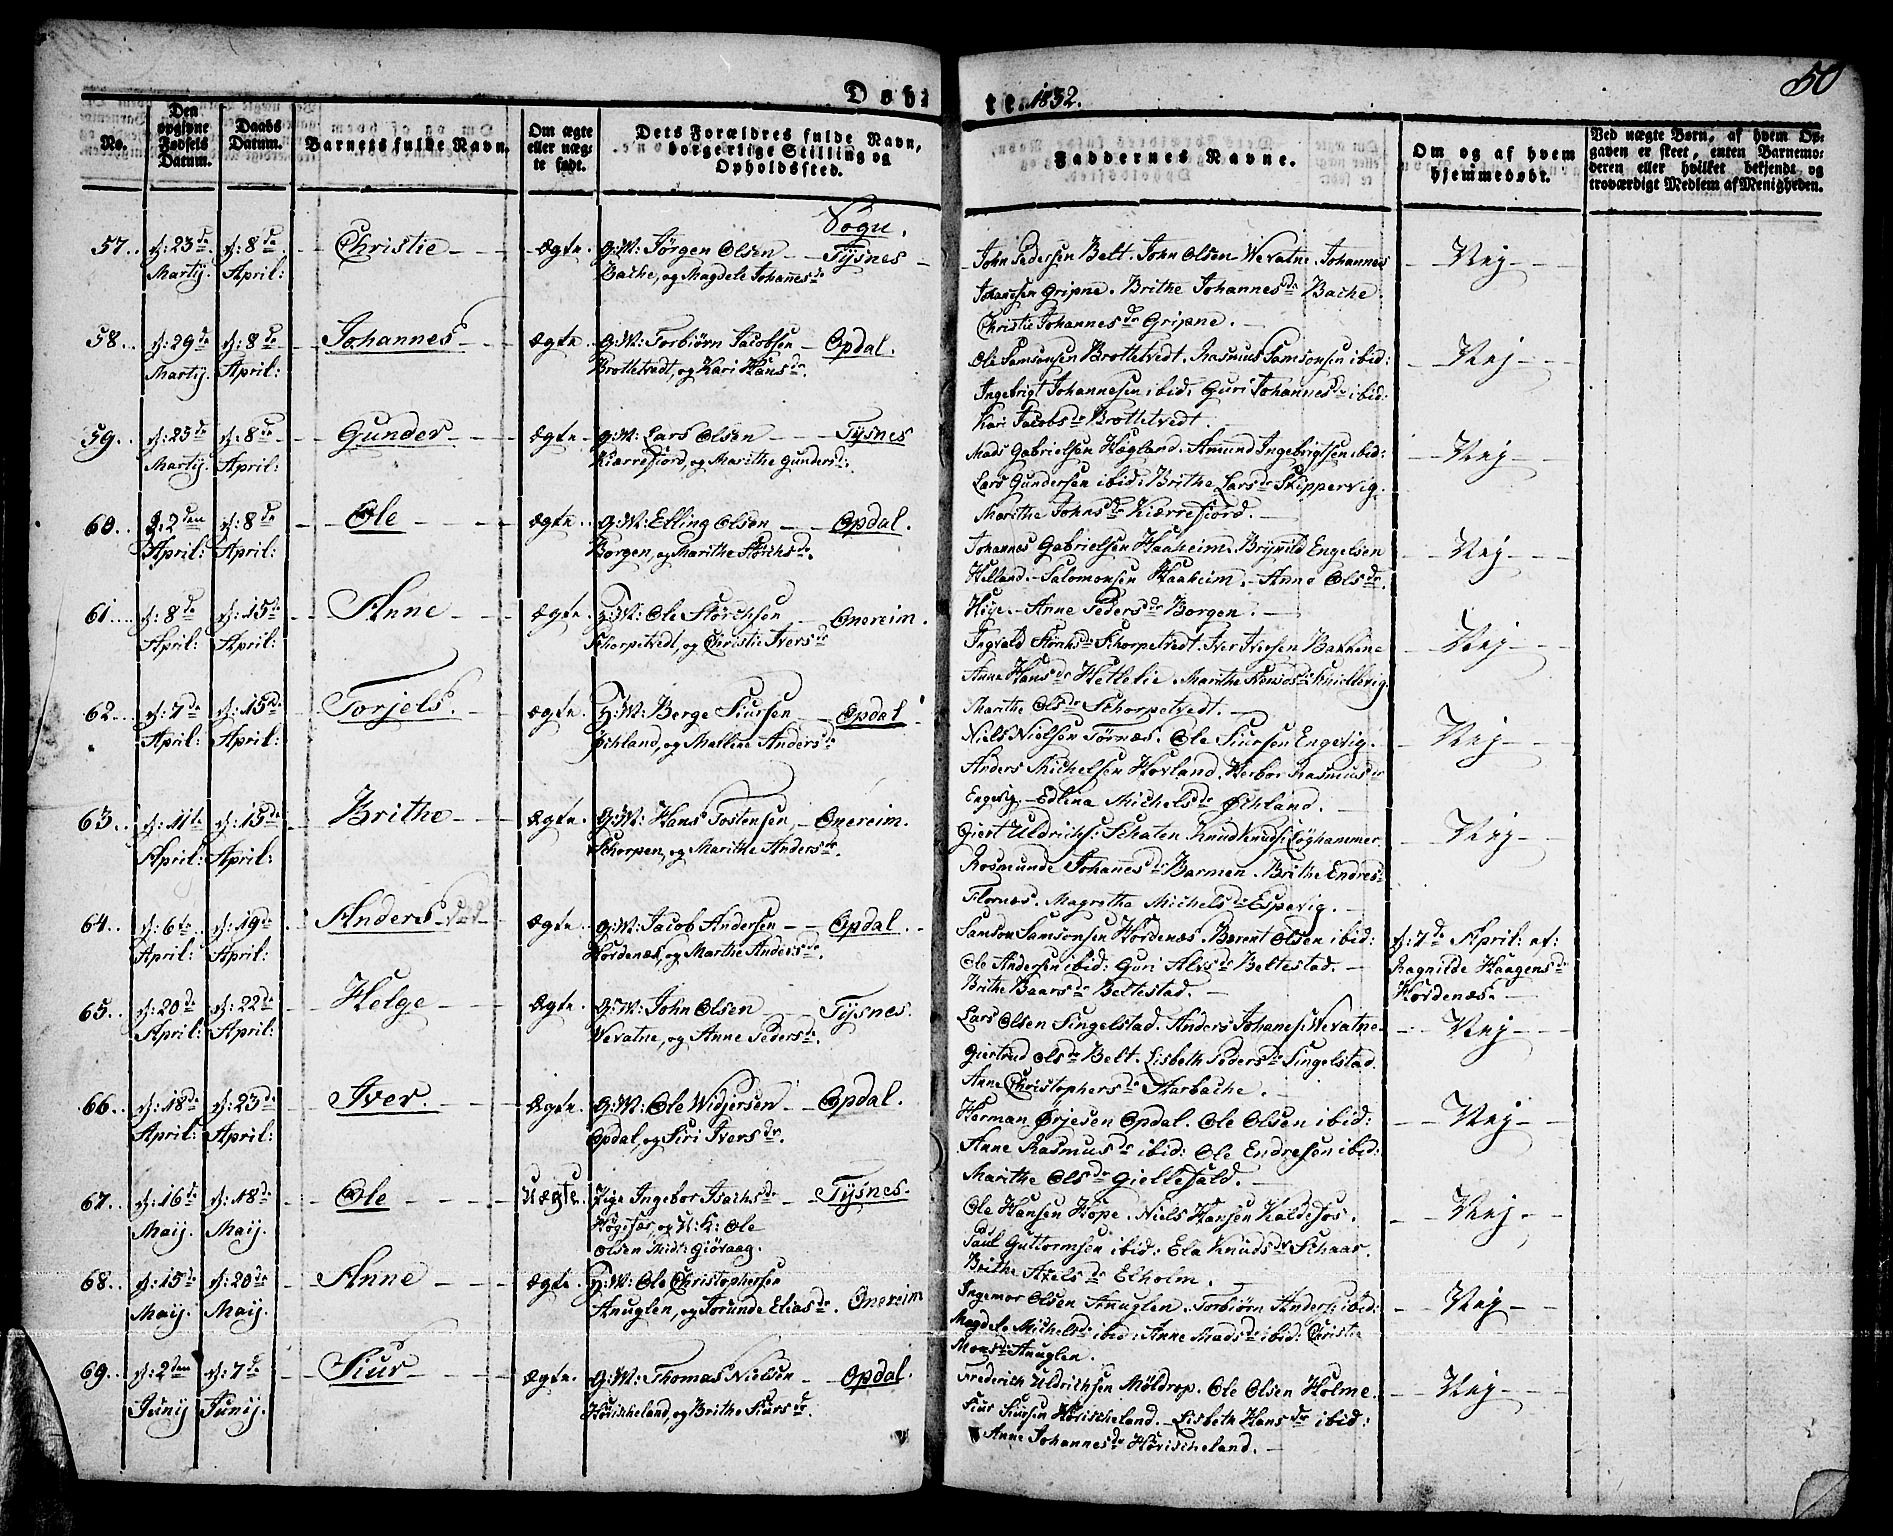 50
Døbte. 1832.
No.
Den opgivne Fødsels Datum.
Daabs Datum.
Barnets fulde Navn.
Om ægte eller uægte født.
Dets Forældres fulde Navn, borgerlige Stilling og Opholdssted.
Faddernes Navne.
Om og af hvem hjemmedøbt.
Ved uægte Børn, af hvem Opgaven er skeet, enten Barnemoderen eller hvilket bekjendt og troværdigt Medlem af Menigheden.
Sogn.
57. d: 23de Martij. d: 8de April: Christie Ægte. G:M: Jørgen Olsen Bache, og Magdele Johannesdr Tysnes
John Pedersen Belt. John Olsen Wevatne. Johannes
Johannesen Gripne. Brithe Johannesdr Bache.
Christie Johannesdr Gripne. Nej
58. d: 29de Martij. d: 8de April: Johannes Ægte. G:M: Torbiørn Jacobsen Brottetvedt, og Kari Hansdr. Opdal.
Ole Samsonsen Brottetvedt. Rasmus Samsonsen ibid:
Ingebrigt Johannesen ibid: Guri Johannesdr ibid:
Kari Jacobsdr Brottetvedt. Nej
59. d: 25de Martij. d: 8de April: Gunder Ægte. G:M: Lars Olsen Kiærrefiord, og Marithe Gundersd: Tysnes
Mads Gabrielsen Hægland. Amund Ingebrigtsen ibid:
Lars Gundersen ibid: Brithe Larsdr Skippervig.
Marithe Johnsdr Kiærrefiord. Nej
60. d: 2den April: d: 8de April: Ole Ægte. G:M: Elling Olsen Borgen, og Marithe Størchsdr. Opdal.
Johannes Gabrielsen Haaheim. Brynild Engelsen
Helland. Salomonsen Haaheim. Anne Olsdr
Hije. Anne Pedersdr Borgen. Nej
61. d: 8de April: d: 15de April: Anne Ægte. H:M: Ole Størchsen Skorpetvedt, og Christie Iversdr Onereim.
Ingvald Størchsdr Schorpetvedt. Iver Iversen Bakkene
Anne Hansdr Hettelie. Marithe
Marithe Olsdr Schorpetvedt. Nej
62. d: 7de April: d: 15de April: Torjels. Ægte. H:M: Berge Siursen Øchland, og Mallene Andersdr Opdal
Niels Nielsen Tørnæs. Ole Siursen Engevig.
Anders Michelsen Hovland. Herbor Rasmusdr
Engevig. Edlina Michelsdr Øchland. Nej
63. d: 11te April: d: 15de April: Brithe Ægte. G:M: Hans Tostensen Schorpen, og Marithe Andersdr. Onereim.
Giert Uldrichs: Schaten. Knud Knuds: Løghammer.
Rosmunde Johannesdr Barmen. Brithe Endresdr
Flornæs. Magretha Michelsdr Espevig. Nej
64. d: 6te April: d: 19de April: Anders død Ægte. G:M: Jacob Andersen Hordenæs, og Marthe Andersdr. Opdal.
Samson Samsonsen Hordenæs. Berent Olsen ibid:
Ole Andersen ibid: Guri Alvsdr Beltestad.
Brithe Baarsdr Beltestad. d: 7de April: af: Ragnilde Haagensdr Hordenæs.
65. d: 20de April: d: 22de April: Helge Ægte. G:M: John Olsen Wevatne, og Anne Pedersdr. Tysnes.
Lars Olsen Singelstad. Anders Johanes: Wevatne.
Giertrud Olsdr Belt. Lisbeth Pedersdr Singelstad.
Anne Christophersdr Aarbache. Nej
66. d: 18de April: d: 23de April: Iver. Ægte. G:M: Ole Widjersen Opdal, og Siri Iversdr. Opdal.
Herman Ørjesen Opdal. Ole Olsen ibid:
Anne Rasmusdr ibid: Ole Endresen ibid:
Marithe Olsdr Giellefald. Nej
67. d: 16de Maij. d: 18de Maij. Ole Uægte. Pige Ingebor Isachsdr Høgefar, og U:K: Ole Olsen Midt: Giøvaag. Tysnes.
Ole Hansen Hope. Niels Hansen Kaldefos.
Paul Guttormsen ibid: Ela Knudsdr Schaar.
Brithe Axelsdr Elholm. Nej
68. d: 15de Maij. d: 20de Maij. Anne Ægte. H:M: Ole Christophersen Anuglen, og Jorunde Eliasdr. Onereim
Ingemor Olsen Anuglen. Torbiørn Anders: ibid:
Magdele Michelsdr ibid: Anne Madsdr ibid: Christie
Monsdr Anuglen. Nej
69. d: 2den Junij d: 7de Junij. Siur Ægte. G:M: Thomas Nielsen Hørischeland, og Brithe Siursdr. Opdal.
Frederich Uldrichsen Møldrop. Ole Olsen Holme.
Siur Siursen Hørischeland. Lisbeth Hansdr ibid:
Anne Johannesdr Hørischeland. Nej